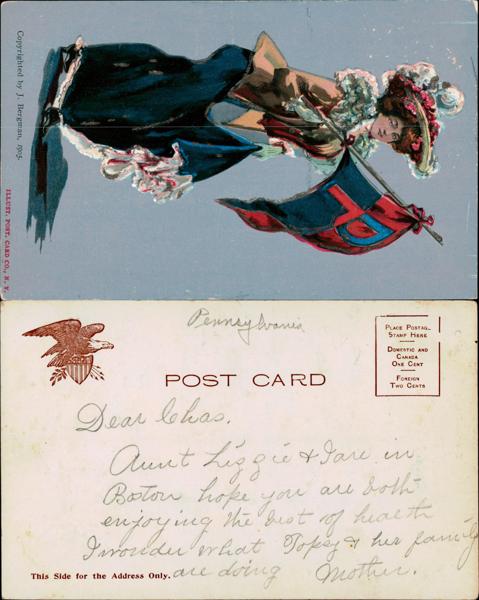 Copyrighted by J. Bergman, 1905.
ILLUST. POST. CARD CO., N. Y.
P
Pennsylvania
POST CARD
PLACE POSTAG_
STAMP HERE
DOMESTIC AND
CANADA
ONE CENT
FOREIGN
TWO CENTS
Dear Chas.
Aunt Lizzie & I are in
Boton hope you are both
enjoying the best of health
I wonder what Topsy & her family
are doing Mother.
This Side for the Address Only.